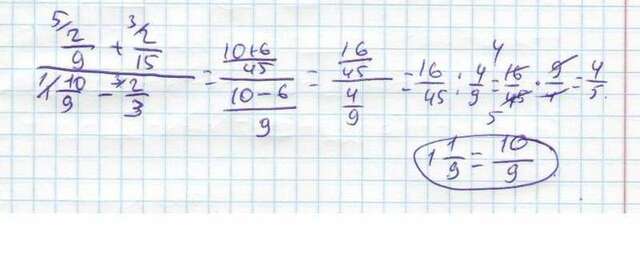 (⁵⁄2/9 + ³⁄2/15) / (¹⁄10/9 − ³⁄2/3) = ((10+6)/45) / ((10−6)/9) = (16/45) / (4/9) = 16/45 : 4/9 = 16/45 · 9/4 = 4/5.
1 1/9 = 10/9